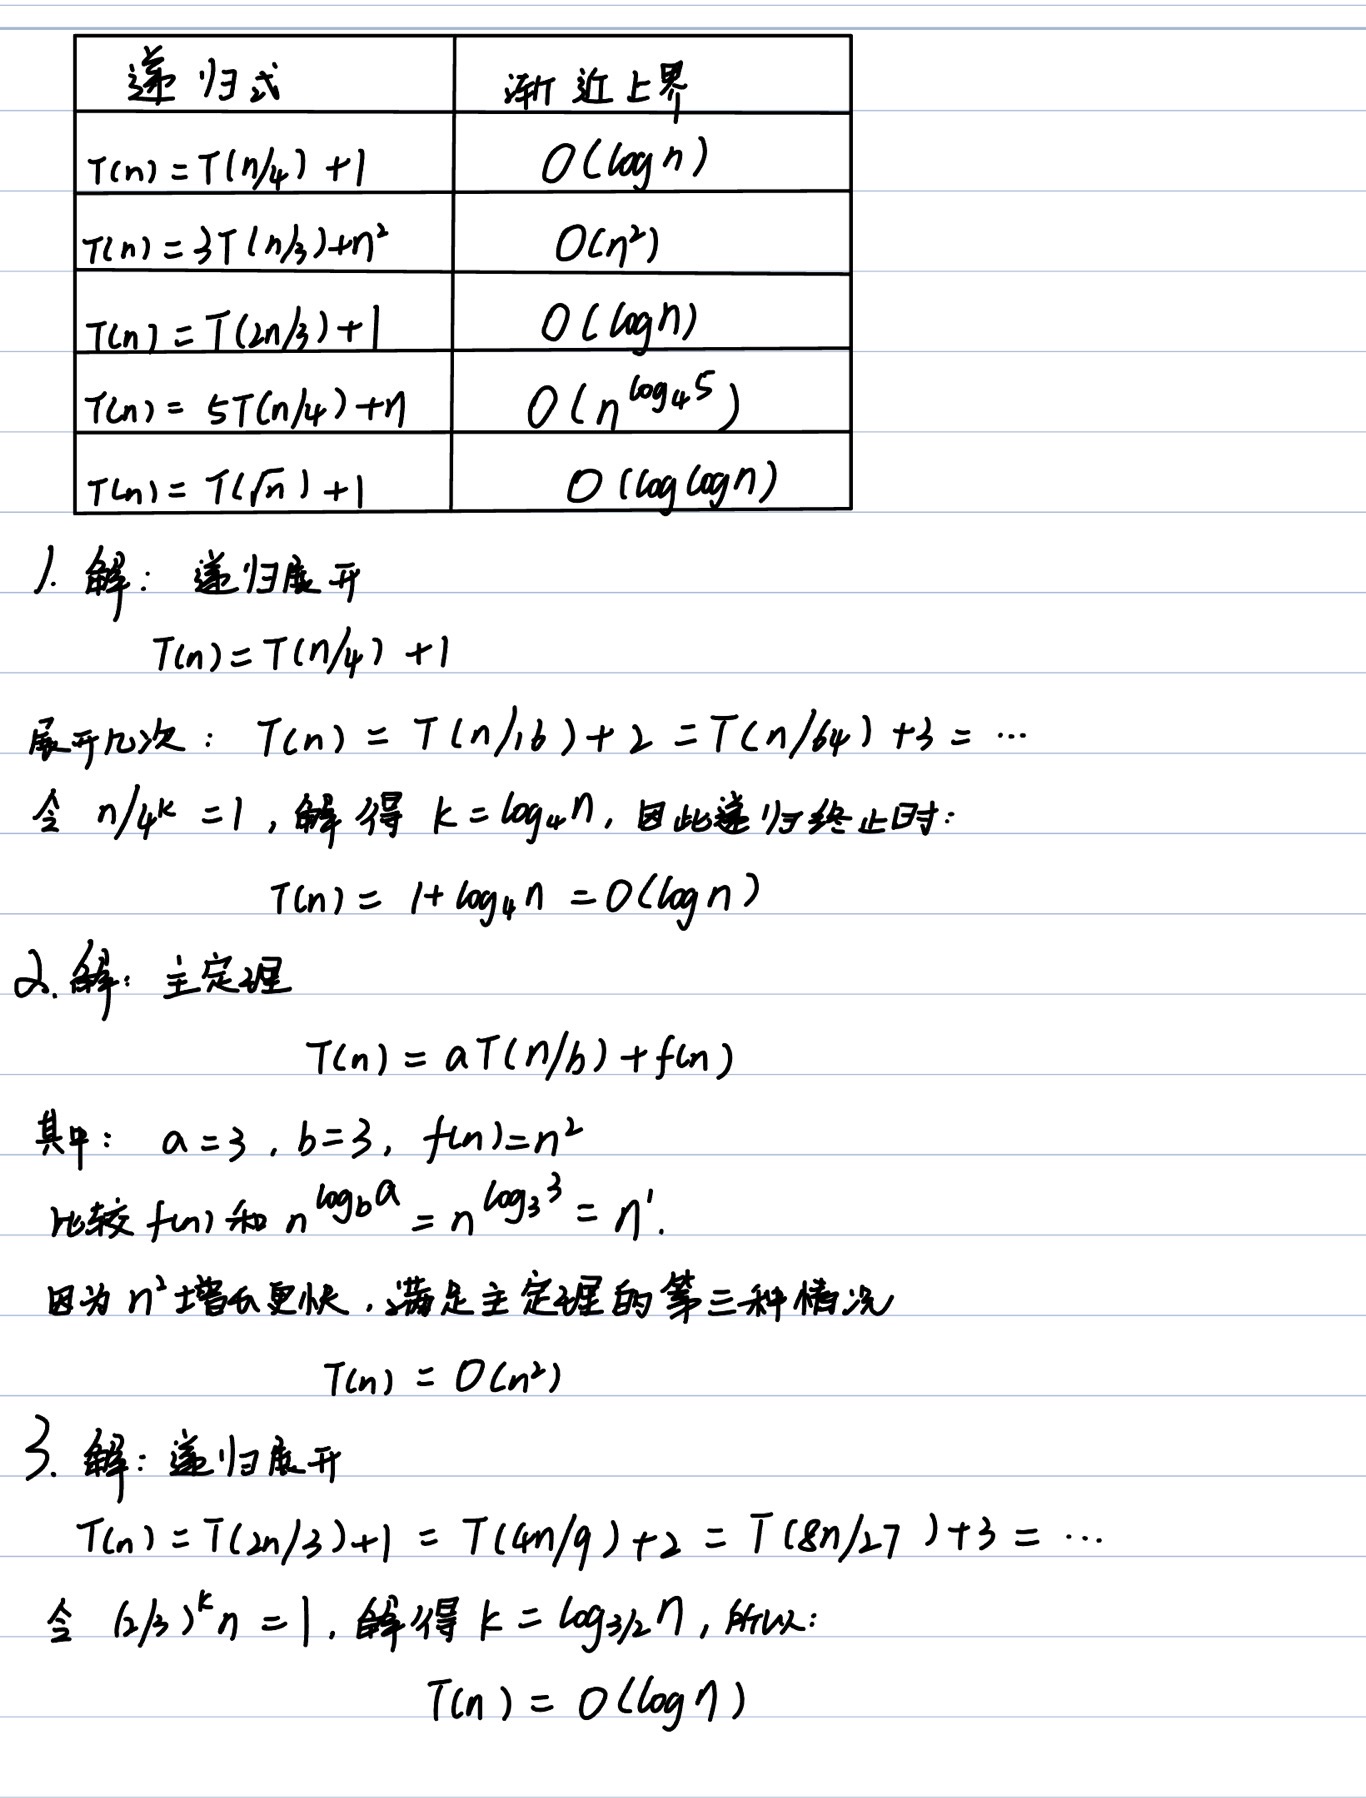 递归式 渐近上界
T(n)=T(n/4)+1 O(log n)
T(n)=3T(n/3)+n² O(n²)
T(n)=T(2n/3)+1 O(log n)
T(n)=5T(n/4)+n O(n^{log₄5})
T(n)=T(√n)+1 O(log log n)
1. 解：递归展开
T(n)=T(n/4)+1
展开几次：T(n)=T(n/16)+2=T(n/64)+3=…
令 n/4^k=1，解得 k=log₄n，因此递归终止时：
T(n)=1+log₄n=O(log n)
2. 解：主定理
T(n)=aT(n/b)+f(n)
其中：a=3，b=3，f(n)=n²
比较 f(n) 和 n^{log_b a}=n^{log₃3}=n¹.
因为 n² 增长更快，满足主定理的第三种情况
T(n)=O(n²)
3. 解：递归展开
T(n)=T(2n/3)+1=T(4n/9)+2=T(8n/27)+3=…
令 (2/3)^k n=1，解得 k=log_{3/2}n，所以：
T(n)=O(log n)